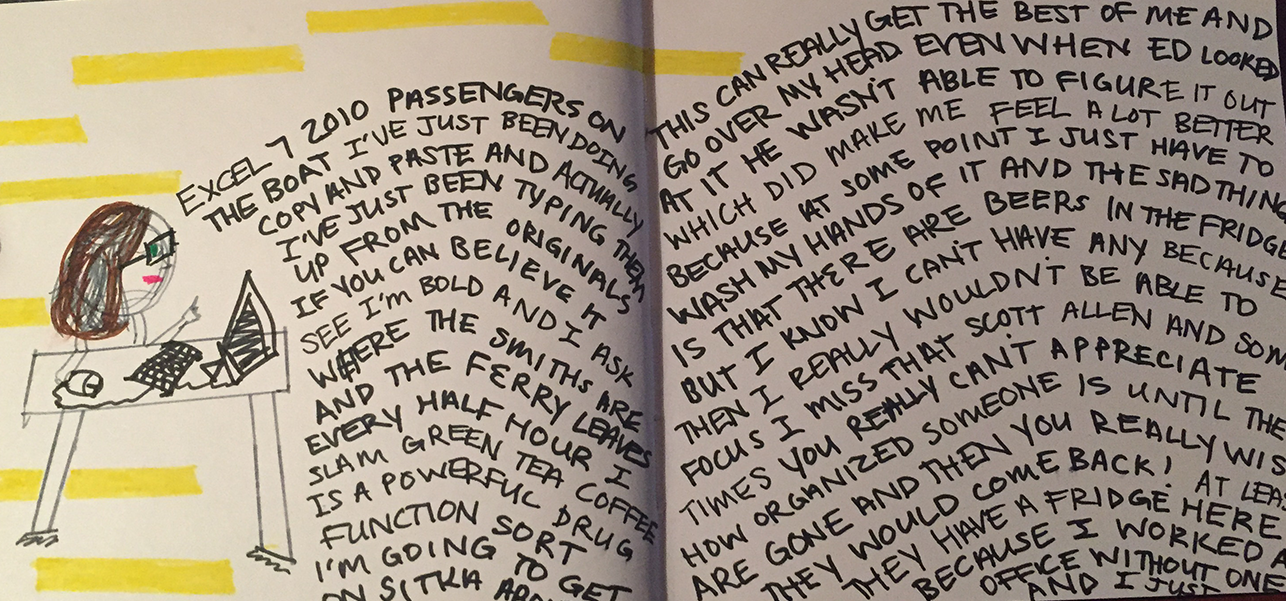 EXCEL 7 2010 PASSENGERS ON
THE BOAT I'VE JUST BEEN DOING
COPY AND PASTE AND ACTUALLY
I'VE JUST BEEN TYPING THEM
UP FROM THE ORIGINALS
IF YOU CAN BELIEVE IT
SEE I'M BOLD AND I ASK
WHERE THE SMITHS ARE
AND THE FERRY LEAVES
EVERY HALF HOUR I
SLAM GREEN TEA COFFEE
IS A POWERFUL DRUG
FUNCTION SORT
I'M GOING TO GET
ON SITKA
THIS CAN REALLY GET THE BEST OF ME AND
GO OVER MY HEAD EVEN WHEN ED LOOKED
AT IT HE WASN'T ABLE TO FIGURE IT OUT
WHICH DID MAKE ME FEEL A LOT BETTER
BECAUSE AT SOME POINT I JUST HAVE TO
WASH MY HANDS OF IT AND THE SAD THING
IS THAT THERE ARE BEERS IN THE FRIDGE
BUT I KNOW I CAN'T HAVE ANY BECAUSE
THEN I REALLY WOULDN'T BE ABLE TO
FOCUS I MISS THAT SCOTT ALLEN AND SOM
TIMES YOU REALLY CAN'T APPRECIATE
HOW ORGANIZED SOMEONE IS UNTIL THE
ARE GONE AND THEN YOU REALLY WIS
THEY WOULD COME BACK! AT LEA
THEY HAVE A FRIDGE HERE
BECAUSE I WORKED A
OFFICE WITHOUT ONE
AND I JUST